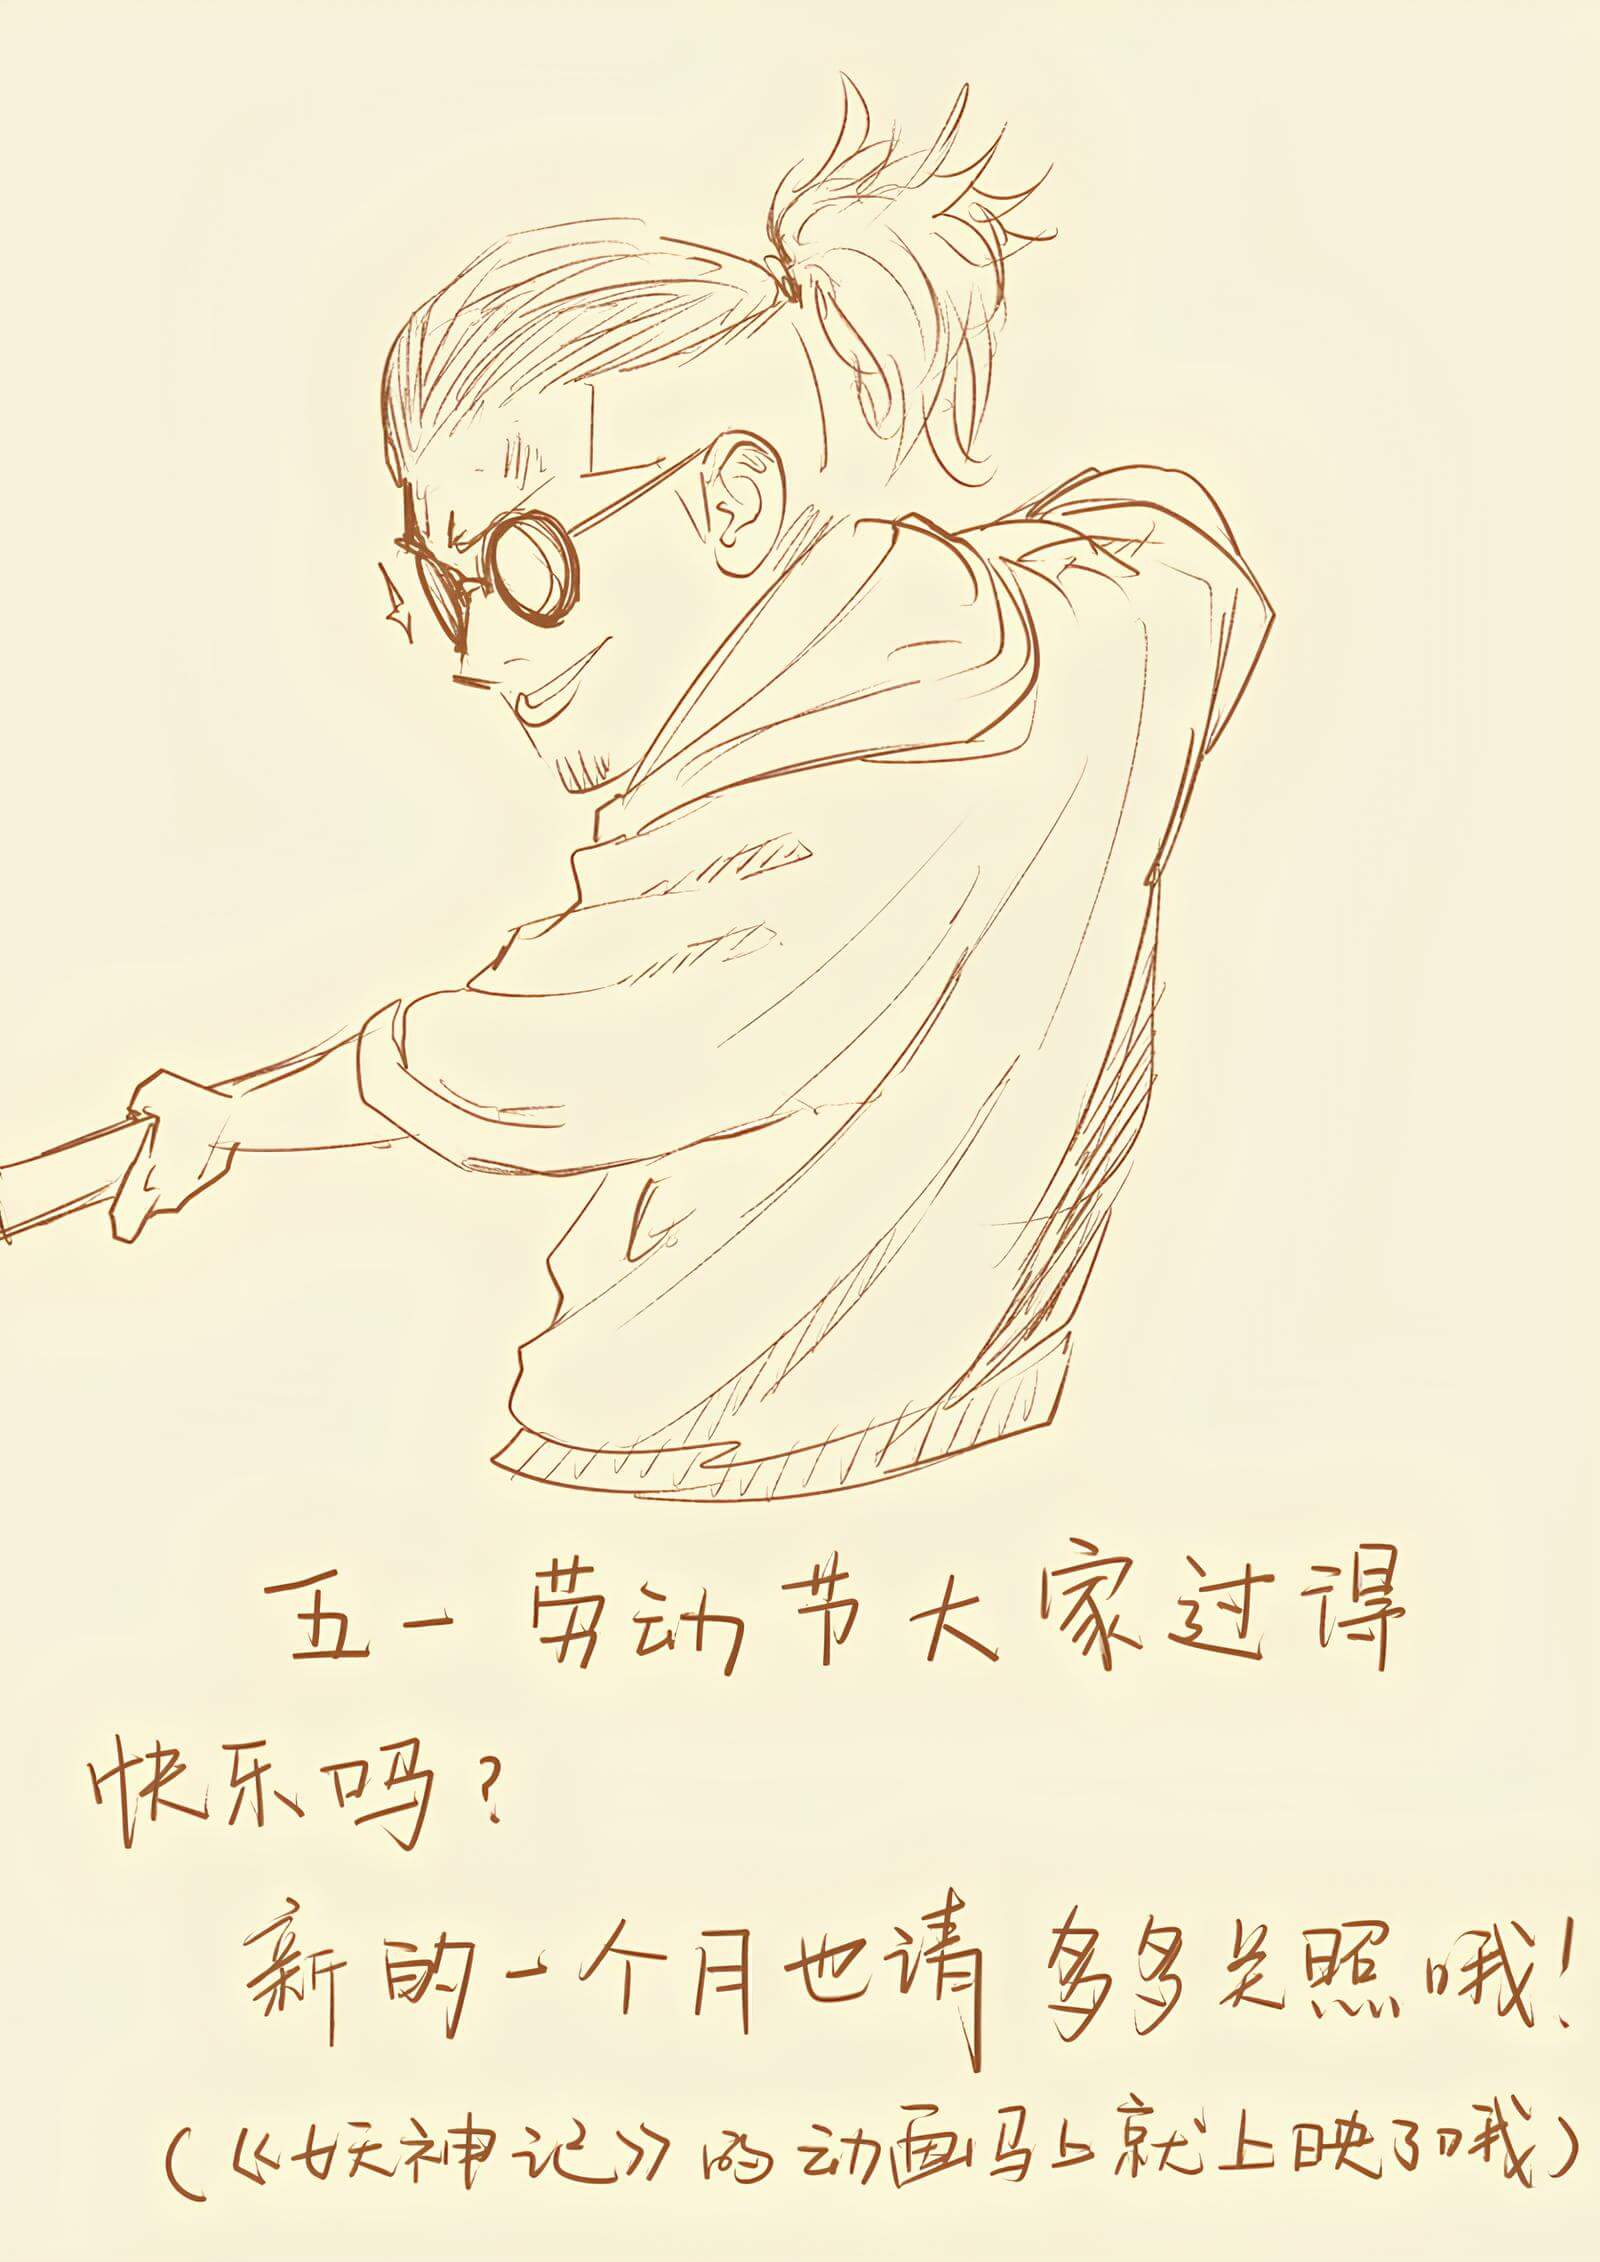 五一劳动节大家过得
快乐吗?
新的一个月也请多多关照哦!
(《妖神记》的动画马上就上映了哦)